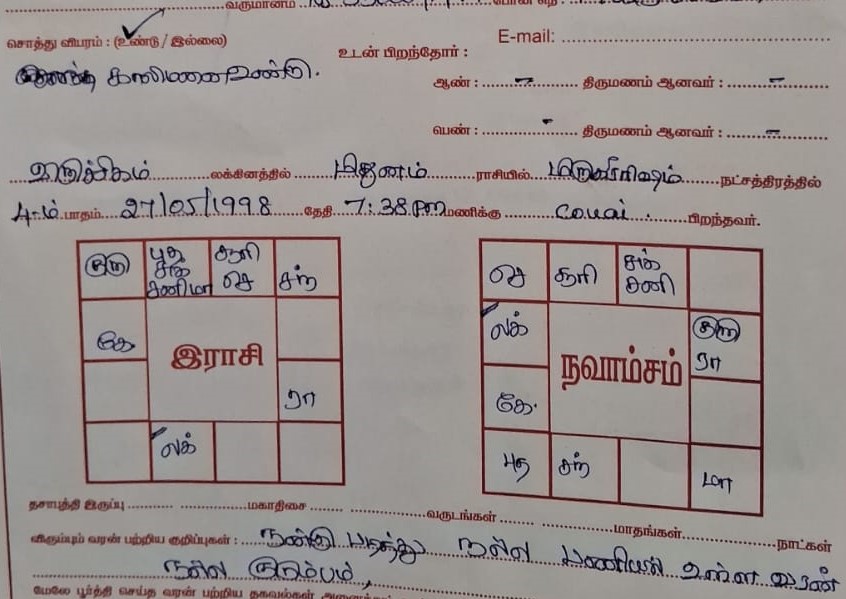 வருமானம்
சொத்து விபரம் : (உண்டு / இல்லை)
உடன் பிறந்தோர் :
E-mail:
காலிமனை உண்டு.
ஆண் : – திருமணம் ஆனவர் : –
பெண் : - திருமணம் ஆனவர் : –
விருச்சிகம் லக்கினத்தில் மிதுனம் ராசியில் மிருகசீரிஷம் நட்சத்திரத்தில்
4-ம் பாதம் 27/05/1998 தேதி 7:38 PM மணிக்கு Covai. பிறந்தவர்.
குரு
புத சுக் சனி மா
சூரி செ
சந்
கே
இராசி
ரா
லக்
செ
சூரி
சுக் சனி
லக்
நவாம்சம்
குரு ரா
கே.
புத
சந்
மா
தசாபுத்தி இருப்பு மகாதிசை வருடங்கள் மாதங்கள் நாட்கள்
விரும்பும் வரன் பற்றிய குறிப்புகள் : நன்கு படித்து நல்ல பணியில் உள்ள வரன்
நல்ல குடும்பம்,
மேலே பூர்த்தி செய்த வரன் பற்றிய தகவல்கள்